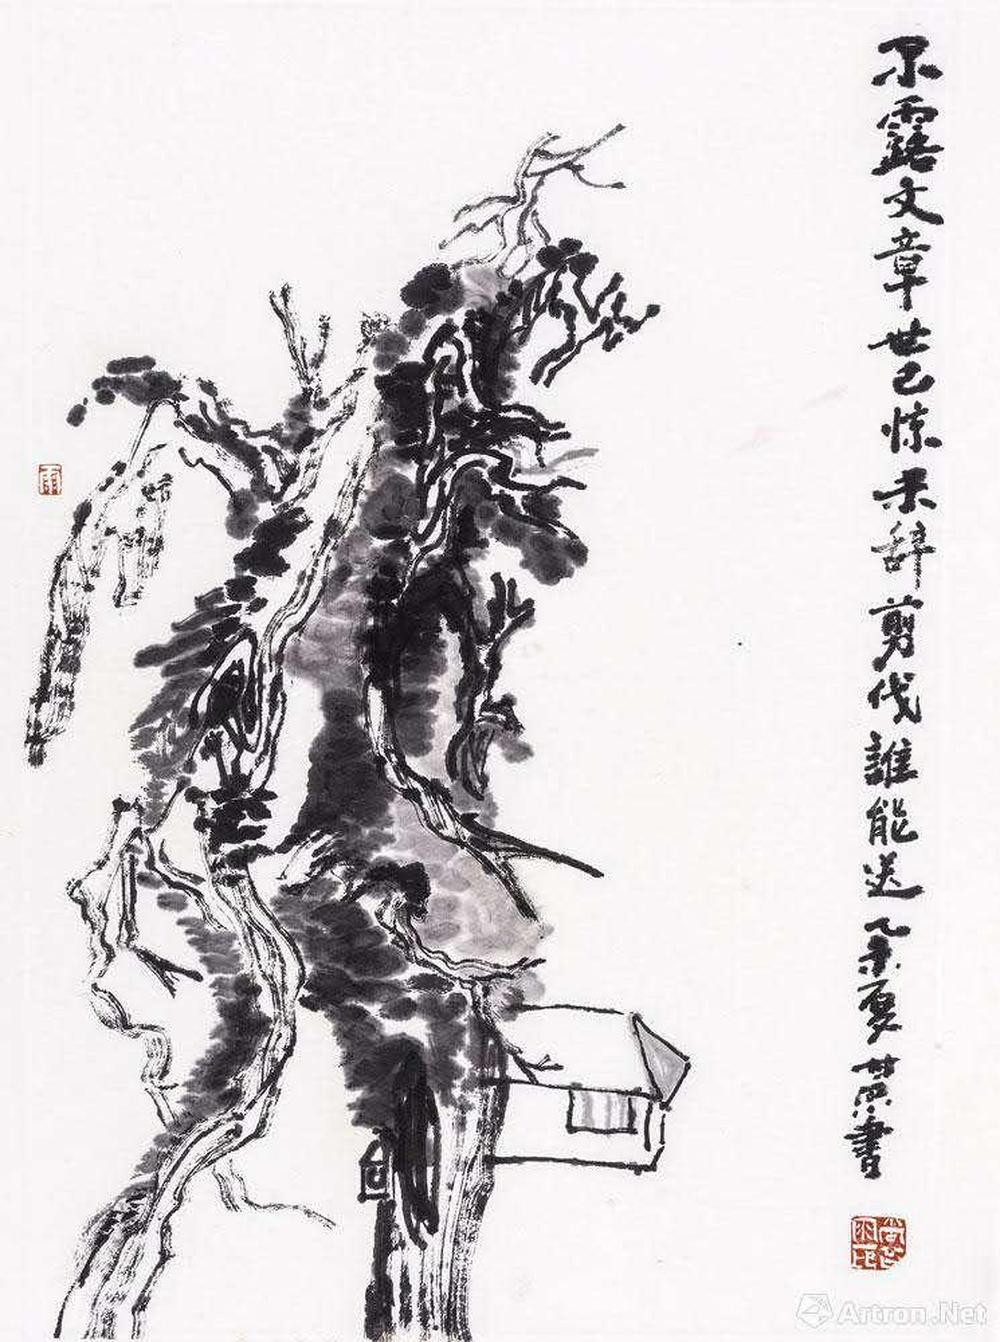 不露文章世已惊未辞剪伐誰能送乙未夏書
雨
Artron.Net